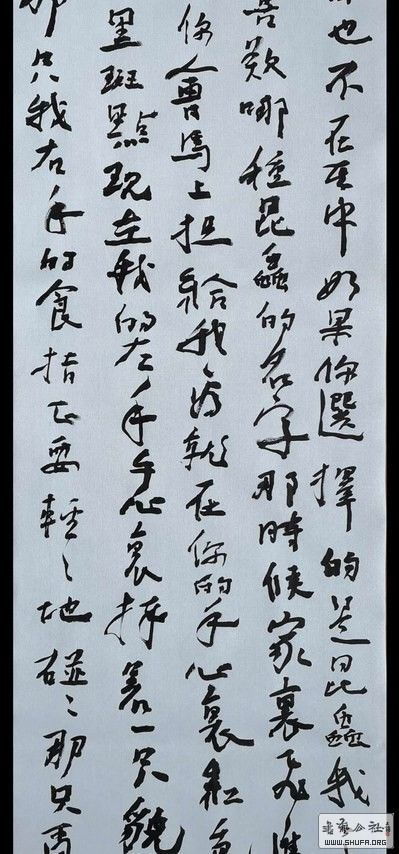 也不在其中如果你選擇的是昆蟲我
喜歡哪種昆蟲的名字那時候家裏飛進
你會馬上給我就在你的手心裏紅色
黑斑點現在我的左手手心裏捧着一只貌
那只我右手的食指正要輕々地碰々那只
書藝公社
WWW.SHUFA.ORG